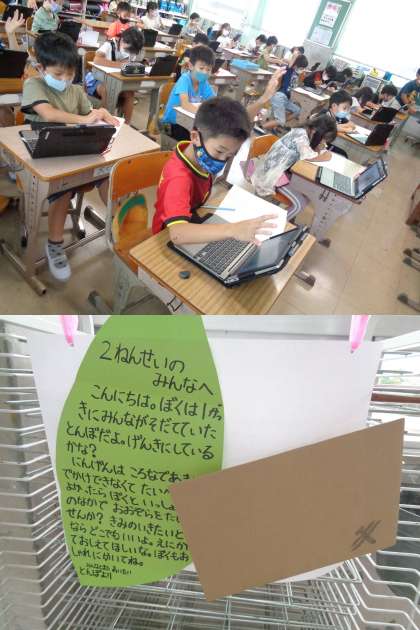 2ねんせいの
みんなへ
こんにちは。ぼくは1がっ
きにみんながそだてていた
とんぼだよ。げんきにしている
かな?
にんげんは ころなであま
でかけできなくて たいへ
よかったら ぼくと いっしょ
のなかで おおぞらをた
せんか? きみのいきたいと
なら どこでもいいよ。えにか
ておしえてほしいな。ぼくもお
しゃれに かいてね。
あいたい
とんぼより